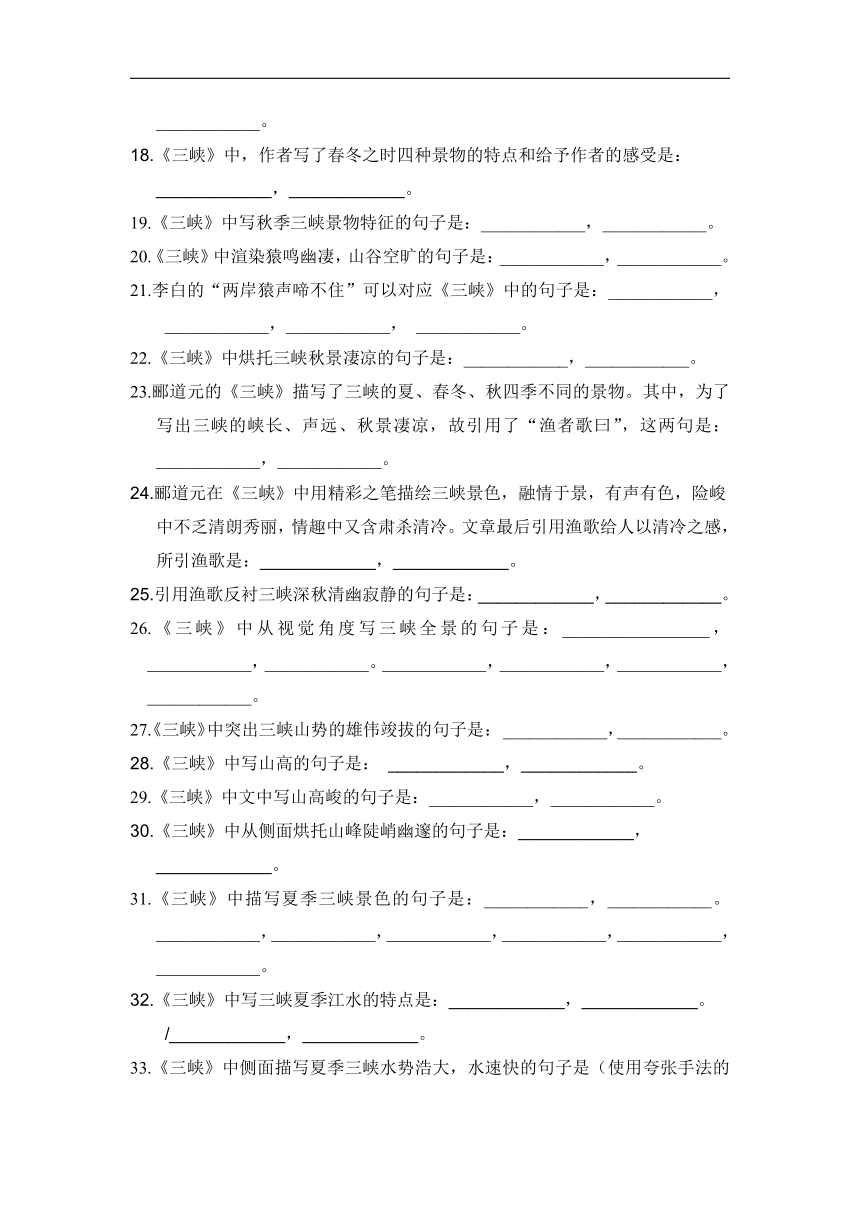 ____________。
18.《三峡》中，作者写了春冬之时四种景物的特点和给予作者的感受是：
____________，____________。
19.《三峡》中写秋季三峡景物特征的句子是：____________，____________。
20.《三峡》中渲染猿鸣幽凄，山谷空旷的句子是：____________，____________。
21.李白的“两岸猿声啼不住”可以对应《三峡》中的句子是：____________，
____________，____________， ____________。
22.《三峡》中烘托三峡秋景凄凉的句子是：____________，____________。
23.郦道元的《三峡》描写了三峡的夏、春冬、秋四季不同的景物。其中，为了
写出三峡的峡长、声远、秋景凄凉，故引用了“渔者歌曰”，这两句是：
____________，____________。
24.郦道元在《三峡》中用精彩之笔描绘三峡景色，融情于景，有声有色，险峻
中不乏清朗秀丽，情趣中又含肃杀清冷。文章最后引用渔歌给人以清冷之感，
所引渔歌是：____________，____________。
25.引用渔歌反衬三峡深秋清幽寂静的句子是：____________，____________。
26.《三峡》中从视觉角度写三峡全景的句子是：_________________，
____________，____________。____________，____________，____________，
____________。
27.《三峡》中突出三峡山势的雄伟竣拔的句子是：____________，____________。
28.《三峡》中写山高的句子是： ____________，____________。
29.《三峡》中文中写山高峻的句子是：____________，____________。
30.《三峡》中从侧面烘托山峰陡峭幽邃的句子是：____________，
____________。
31.《三峡》中描写夏季三峡景色的句子是：____________，____________。
____________，____________，____________，____________，____________，
____________。
32.《三峡》中写三峡夏季江水的特点是：____________，____________。
/____________，____________。
33.《三峡》中侧面描写夏季三峡水势浩大，水速快的句子是（使用夸张手法的